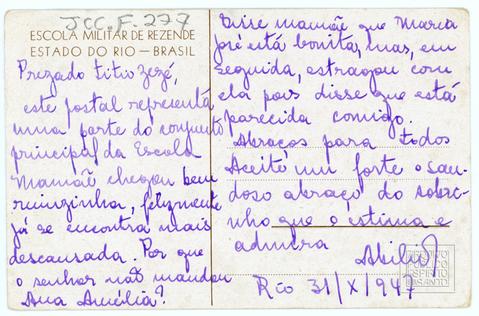 JCC.F.277
ESCOLA MILITAR DE REZENDE
ESTADO DO RIO — BRASIL
Prezado titio Zezé,
este postal representa
uma parte do conjunto
principal da Escola
Mamãe chegou bem
ruinzinha, felizmente
já se encontra mais
descansada. Por que
o senhor não mandou
Ana Amélia?
Disse mamãe que Marta
já está bonita, mas, em
seguida, estragou com
ela pois disse que está
parecida comigo.
Abraços para todos
Aceite um forte e sau-
doso abraço do sobri-
nho que o estima e
admira
Abilio
Rio 31/X/1947
ARQUIVO PUBLICO
ESPIRITO SANTO